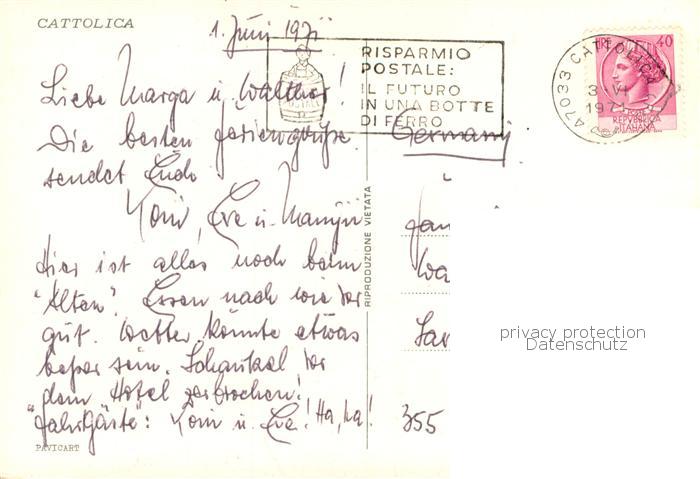 CATTOLICA
1. Juni 1971
RISPARMIO
POSTALE:
IL FUTURO
IN UNA BOTTE
DI FERRO
47033 CATTOLICA
3 VI
1971
LIRE 40
REPUBBLICA
ITALIANA
Liebe Marga u. Walther!
Die besten Feriengrüße
sendet Euch
Eve u.
Hier ist alles noch beim
"Alten". Essen nach wie vor
gut. Wetter könnte etwas
besser sein. Schaukel vor
dem Hotel zerbrochen!
"Fahrgäste": u. Eve! Ha, ha!
PAVICART
RIPRODUZIONE VIETATA
Germany
355
privacy protection
Datenschutz